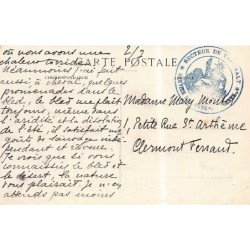 où nous avons une
chaleur torride.
Néanmoins j'ai fait
aussi à cheval, quelques
promenades dans le
bled, le bled me plaît
toujours, même dans
l'aridité et la désolation
de l'été, il satisfait mon
goût de
et rêveur.
Je crois que si vous
connaissiez le bled et
le désert, la nature
vous plairait. Je n'en
attends pas moins
2/3
CARTE POSTALE
SECTEUR DE
Madame Mary
1, Petite Rue St. Arthème
Clermont Ferrand.